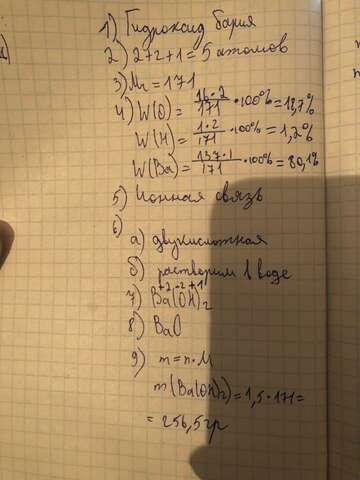 1) Гидроксид бария
2) 2+2+1=5 атомов
3) Mr = 171
4) W(O) = 16·2/171 · 100% = 18,7%
W(H) = 1·2/171 · 100% = 1,2%
W(Ba) = 137·1/171 · 100% = 80,1%
5) Ионная связь
6)
а) двукислотная
б) растворим в воде
7) Ba⁺²(O⁻²H⁺¹)₂
8) BaO
9) m = n·M
m(Ba(OH)₂) = 1,5·171 =
= 256,5гр